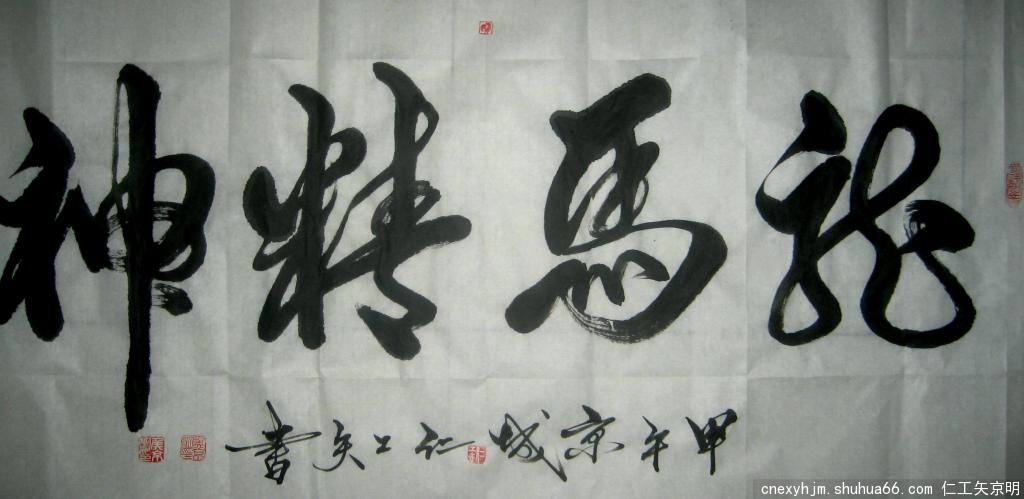 龍馬精神
甲午京城仁工矢書
cnexyhjm.shuhua66.com 仁工矢京明